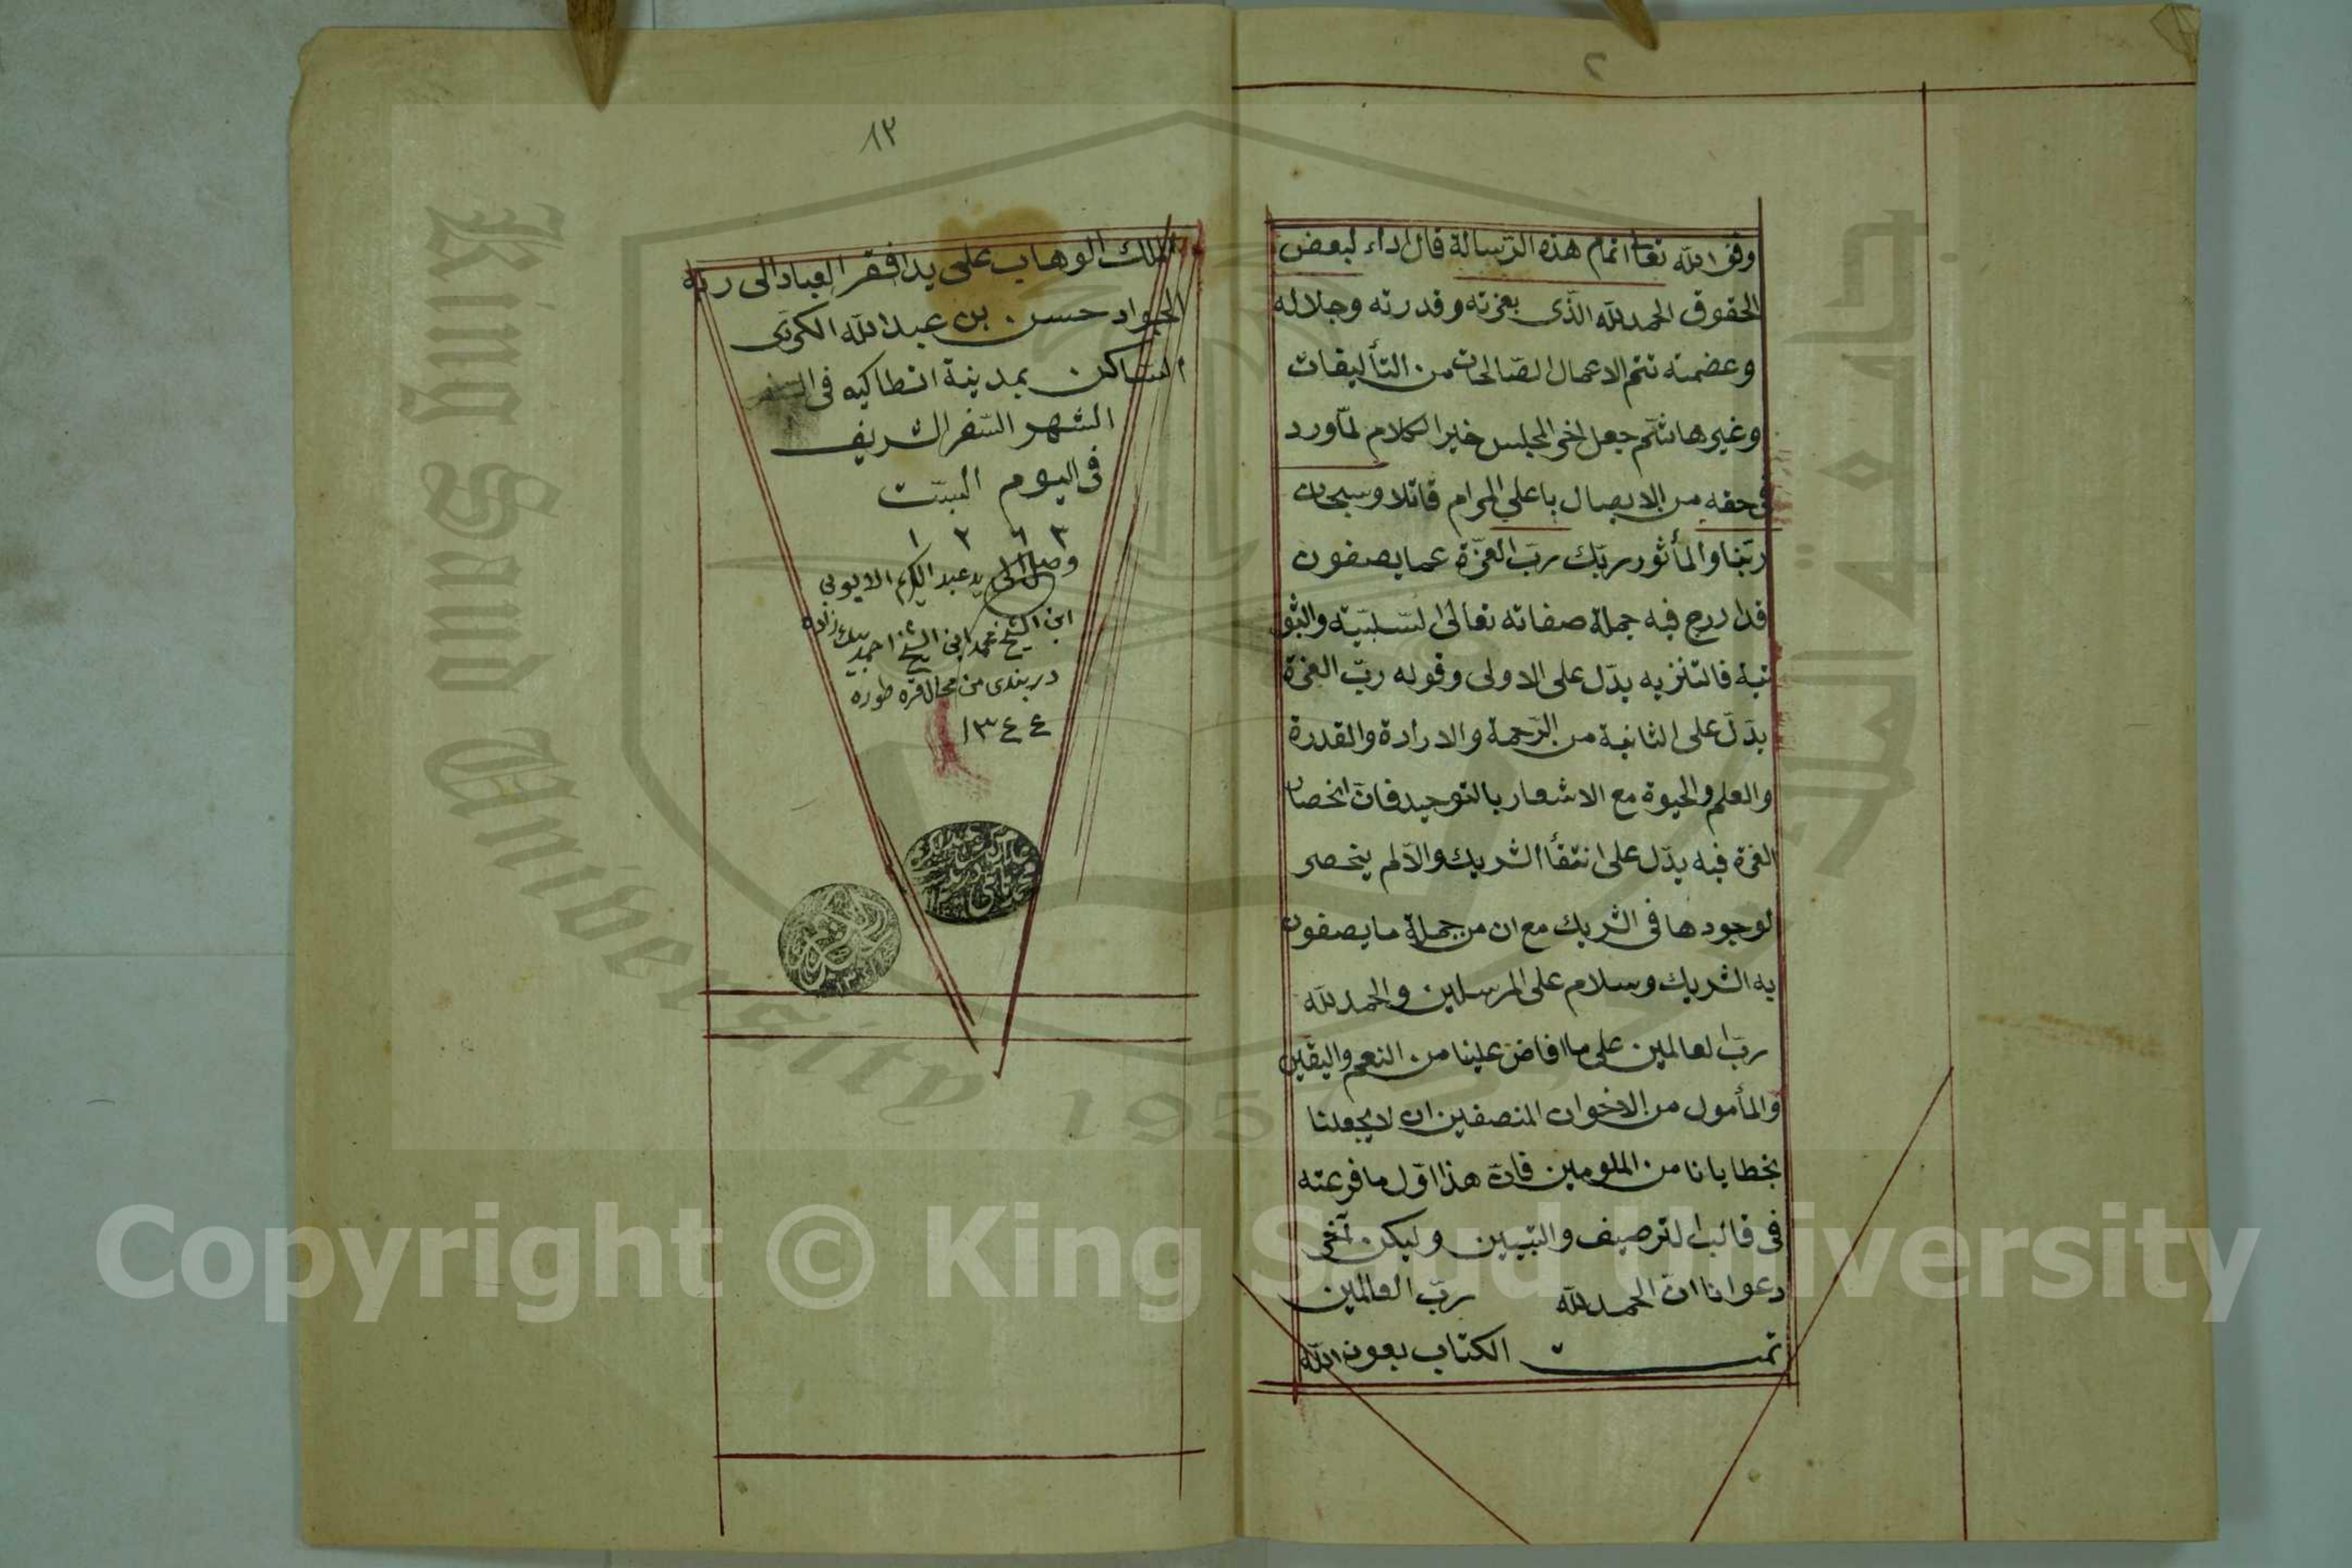 وفق الله تعا اتمام هذه الرسالة قال اداء لبعض
الحقوق الحمد لله الذى بعزته وقدرته وجلاله
وعضمته تتم الاعمال الصالحات من التأليفات
وغيرها ثم جعل اخر المجلس خير الكلام لما ورد
فى حقه من الايصال باعلى المرام قائلا وسبحان
ربنا والمأثور ربك رب العزة عما يصفون
قد ادرج فيه جملة صفاته تعالى السلبية والثبو
تية فالتنزيه يدل على الاولى وقوله رب العزة
يدل على الثانية من الرحمة والارادة والقدرة
والعلم والحيوة مع الاشعار بالتوحيد فان انحصار
العزة فيه يدل على انتفأ الشريك والا لم ينحصر
لوجودها فى الشريك مع ان من جملة ما يصفون
به الشريك وسلام على المرسلين والحمد لله
رب العالمين على ما افاض علينا من النعم واليقين
والمأمول من الاخوان المنصفين ان لا يجعلنا
بخطايانا من الملومين فان هذا اول ما فرعته
فى قالب الترصيف والتبيين وليكن آخر
دعوانا ان الحمد لله رب العالمين
تمت الكتاب بعون الله
١٣
الملك الوهاب على يد افقر العباد الى ربه
الجواد حسن بن عبد الله الكوتى
الساكن بمدينة انطاكيه فى
الشهر السفر الشريف
فى اليوم السبت
١ ٢ ٦ ٣
وصل الى يد عبد الكريم الايوبى
ابن الشيخ محمد ابن الشيخ احمد بيك زاده
دربندى من محال قره طوره
١٣٤٤
King Saud University 1957
جامعة الملك سعود
Copyright © King Saud University